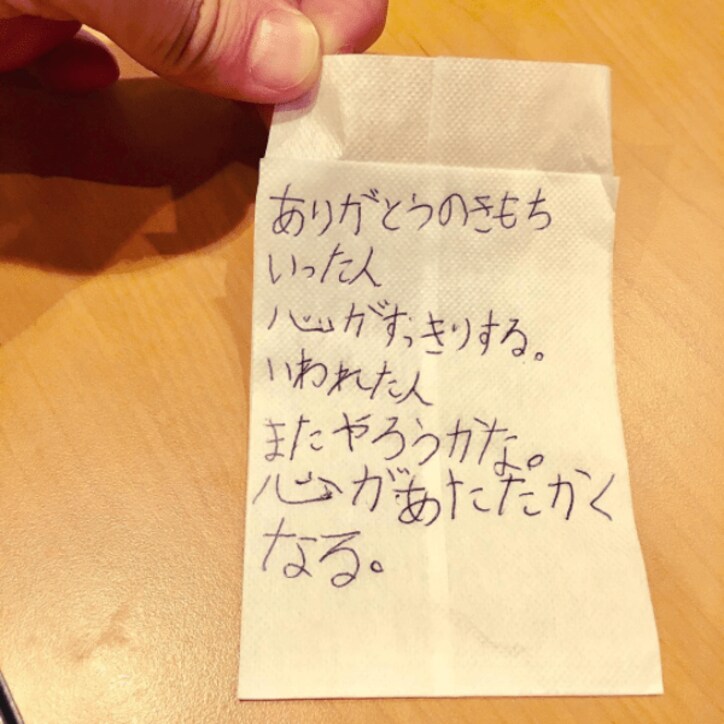 ありがとうのきもち
いった人
心がすっきりする。
いわれた人
またやろうかな。
心があたたかく
なる。